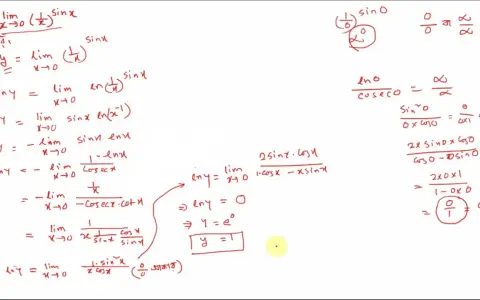 lim x→0 (1/x)^sinx
y = lim x→0 (1/x)^sinx
ln y = lim x→0 ln(1/x)^sinx
y = lim x→0 sinx ln(x⁻¹)
y = - lim x→0 sinx lnx
ln y = - lim x→0 lnx/cosecx
= - lim x→0 (1/x)/(-cosecx·cotx)
= lim x→0 1/(x 1/sinx cosx/sinx)
ln y = lim x→0 (1·sin²x)/(x cosx) (0/0
ln y = lim x→0 (2sinx·cosx)/(1·cosx - xsinx)
⇒ ln y = 0
⇒ y = e⁰
y = 1
(1/0)^sin0 0/0 বা ∝/∝
∝⁰
ln0/cosec0 = ∝/∝
sin²0/(0×cos0) = 0/(0×1
(2×sin0×cos0)/(cos0-0sin0)
= (2×0×1)/(1-0×0)
= 0/1 =